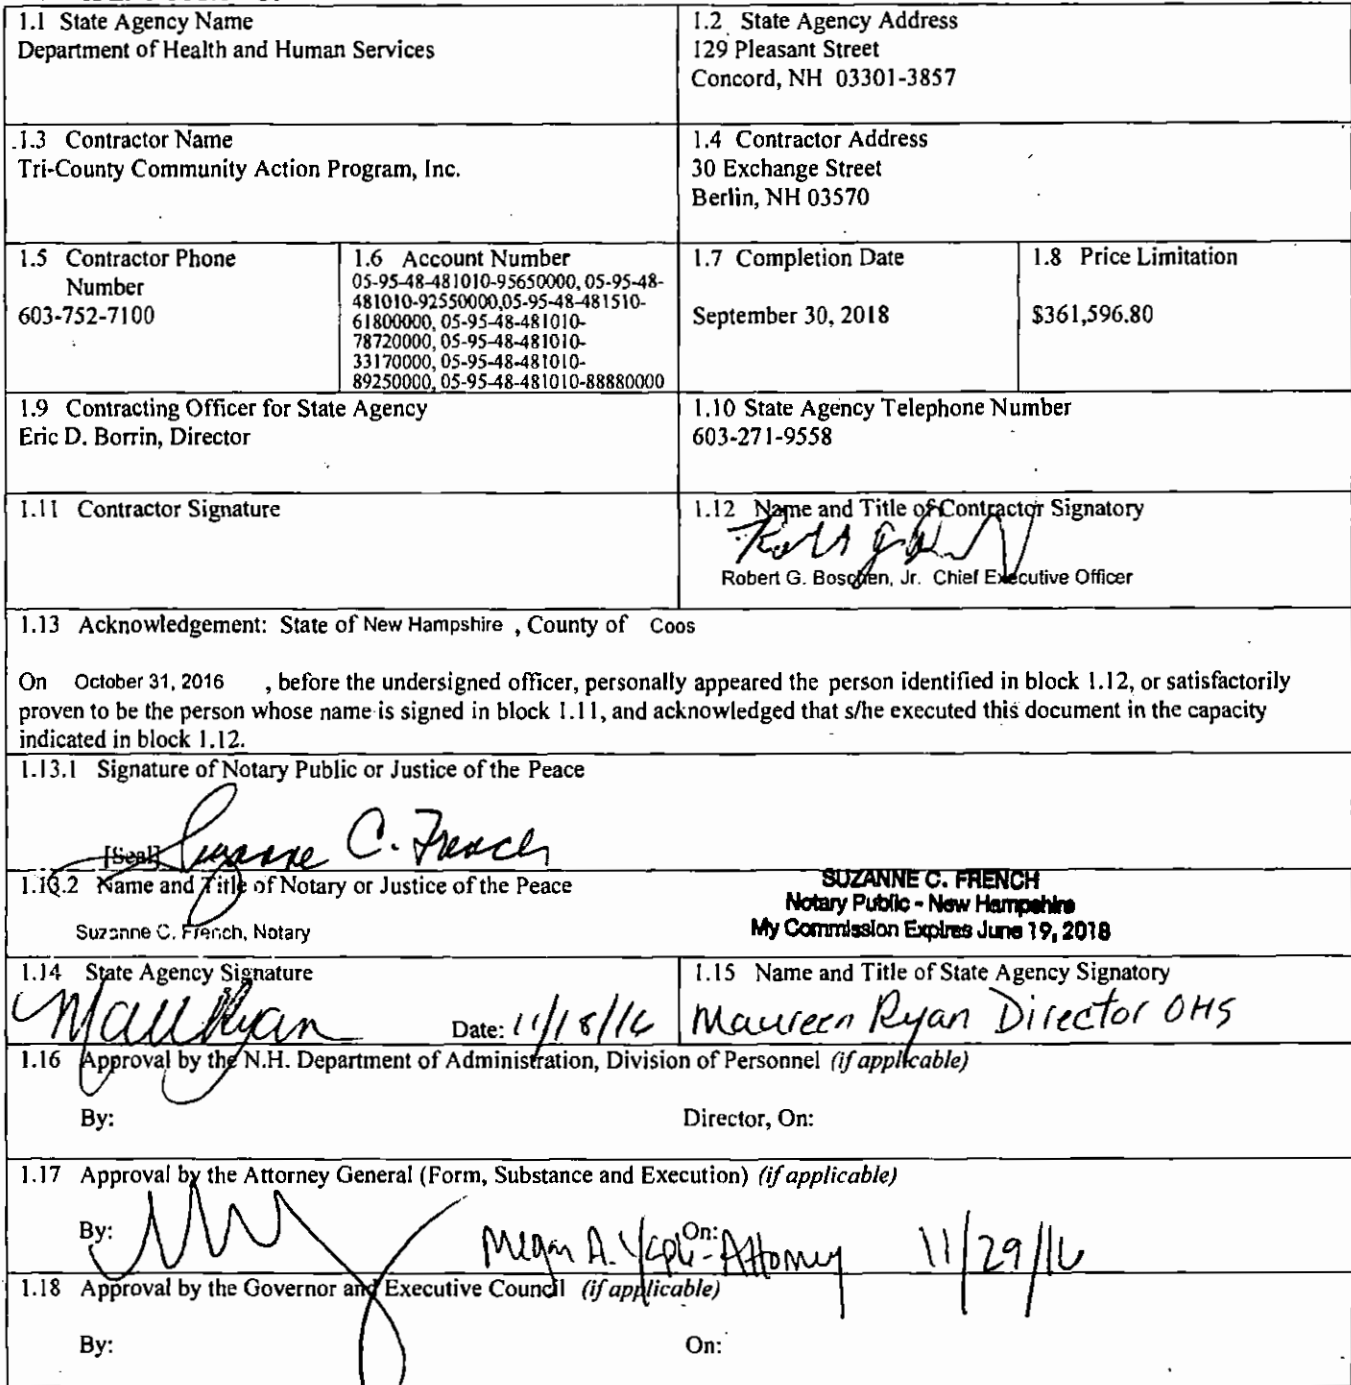 1.1 State Agency Name
Department of Health and Human Services
1.2 State Agency Address
129 Pleasant Street
Concord, NH 03301-3857
1.3 Contractor Name
Tri-County Community Action Program, Inc.
1.4 Contractor Address
30 Exchange Street
Berlin, NH 03570
1.5 Contractor Phone
Number
603-752-7100
1.6 Account Number
05-95-48-481010-95650000, 05-95-48-
481010-92550000,05-95-48-481510-
61800000, 05-95-48-481010-
78720000, 05-95-48-481010-
33170000, 05-95-48-481010-
89250000, 05-95-48-481010-88880000
1.7 Completion Date
September 30, 2018
1.8 Price Limitation
$361,596.80
1.9 Contracting Officer for State Agency
Eric D. Borrin, Director
1.10 State Agency Telephone Number
603-271-9558
1.11 Contractor Signature
1.12 Name and Title of Contractor Signatory
Robert G. Boschen, Jr. Chief Executive Officer
1.13 Acknowledgement: State of New Hampshire , County of Coos
On October 31, 2016 , before the undersigned officer, personally appeared the person identified in block 1.12, or satisfactorily
proven to be the person whose name is signed in block 1.11, and acknowledged that s/he executed this document in the capacity
indicated in block 1.12.
1.13.1 Signature of Notary Public or Justice of the Peace
[Seal] Suzanne C. French
1.13.2 Name and Title of Notary or Justice of the Peace
Suzanne C. French, Notary
SUZANNE C. FRENCH
Notary Public - New Hampshire
My Commission Expires June 19, 2018
1.14 State Agency Signature
Date: 11/18/16
1.15 Name and Title of State Agency Signatory
Maureen Ryan Director OHS
1.16 Approval by the N.H. Department of Administration, Division of Personnel (if applicable)
By:
Director, On:
1.17 Approval by the Attorney General (Form, Substance and Execution) (if applicable)
By:
Megan A. - Attorney
On:
11/29/16
1.18 Approval by the Governor and Executive Council (if applicable)
By:
On: